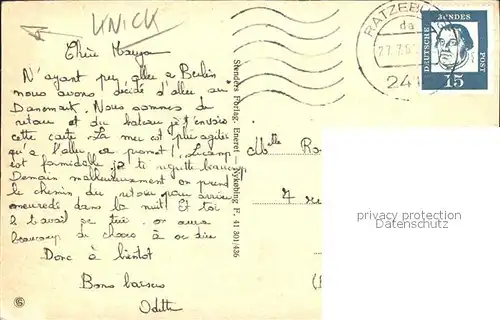 KNICK
Chère Maryse
N'ayant peu aller à Berlin
nous avons décidé d'aller au
Danemark. Nous sommes de
retour et du bateau je t'envoie
cette carte. La mer est plus agitée
qu'à l'aller ça promet !
est formidable je te regrette beaucoup
Demain malheureusement on prend
le chemin du retour pour arriver
dans la nuit Et toi
2 travail ça tue. on aura
beaucoup de choses à se dire
Donc à bientôt
Bons baisers
Odette
Skandes Forlag. Eneret — Nykøbing F. 41 301/436
Melle
7
RATZEBU
27.7.6
241
DEUTSCHE BUNDES POST
15
privacy protection
Datenschutz